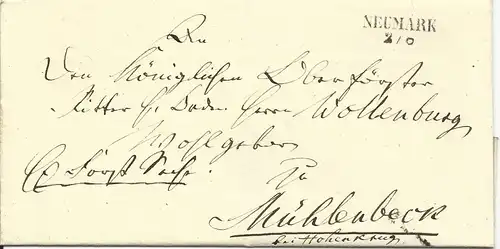 NEUMARK
2/6
An
Den Königlichen Oberförster
Ritter p. Herrn Wollenburg
Wohlgeboren
Forst Sache.
Zu
Mühlenbeck
bei Hohenkrug